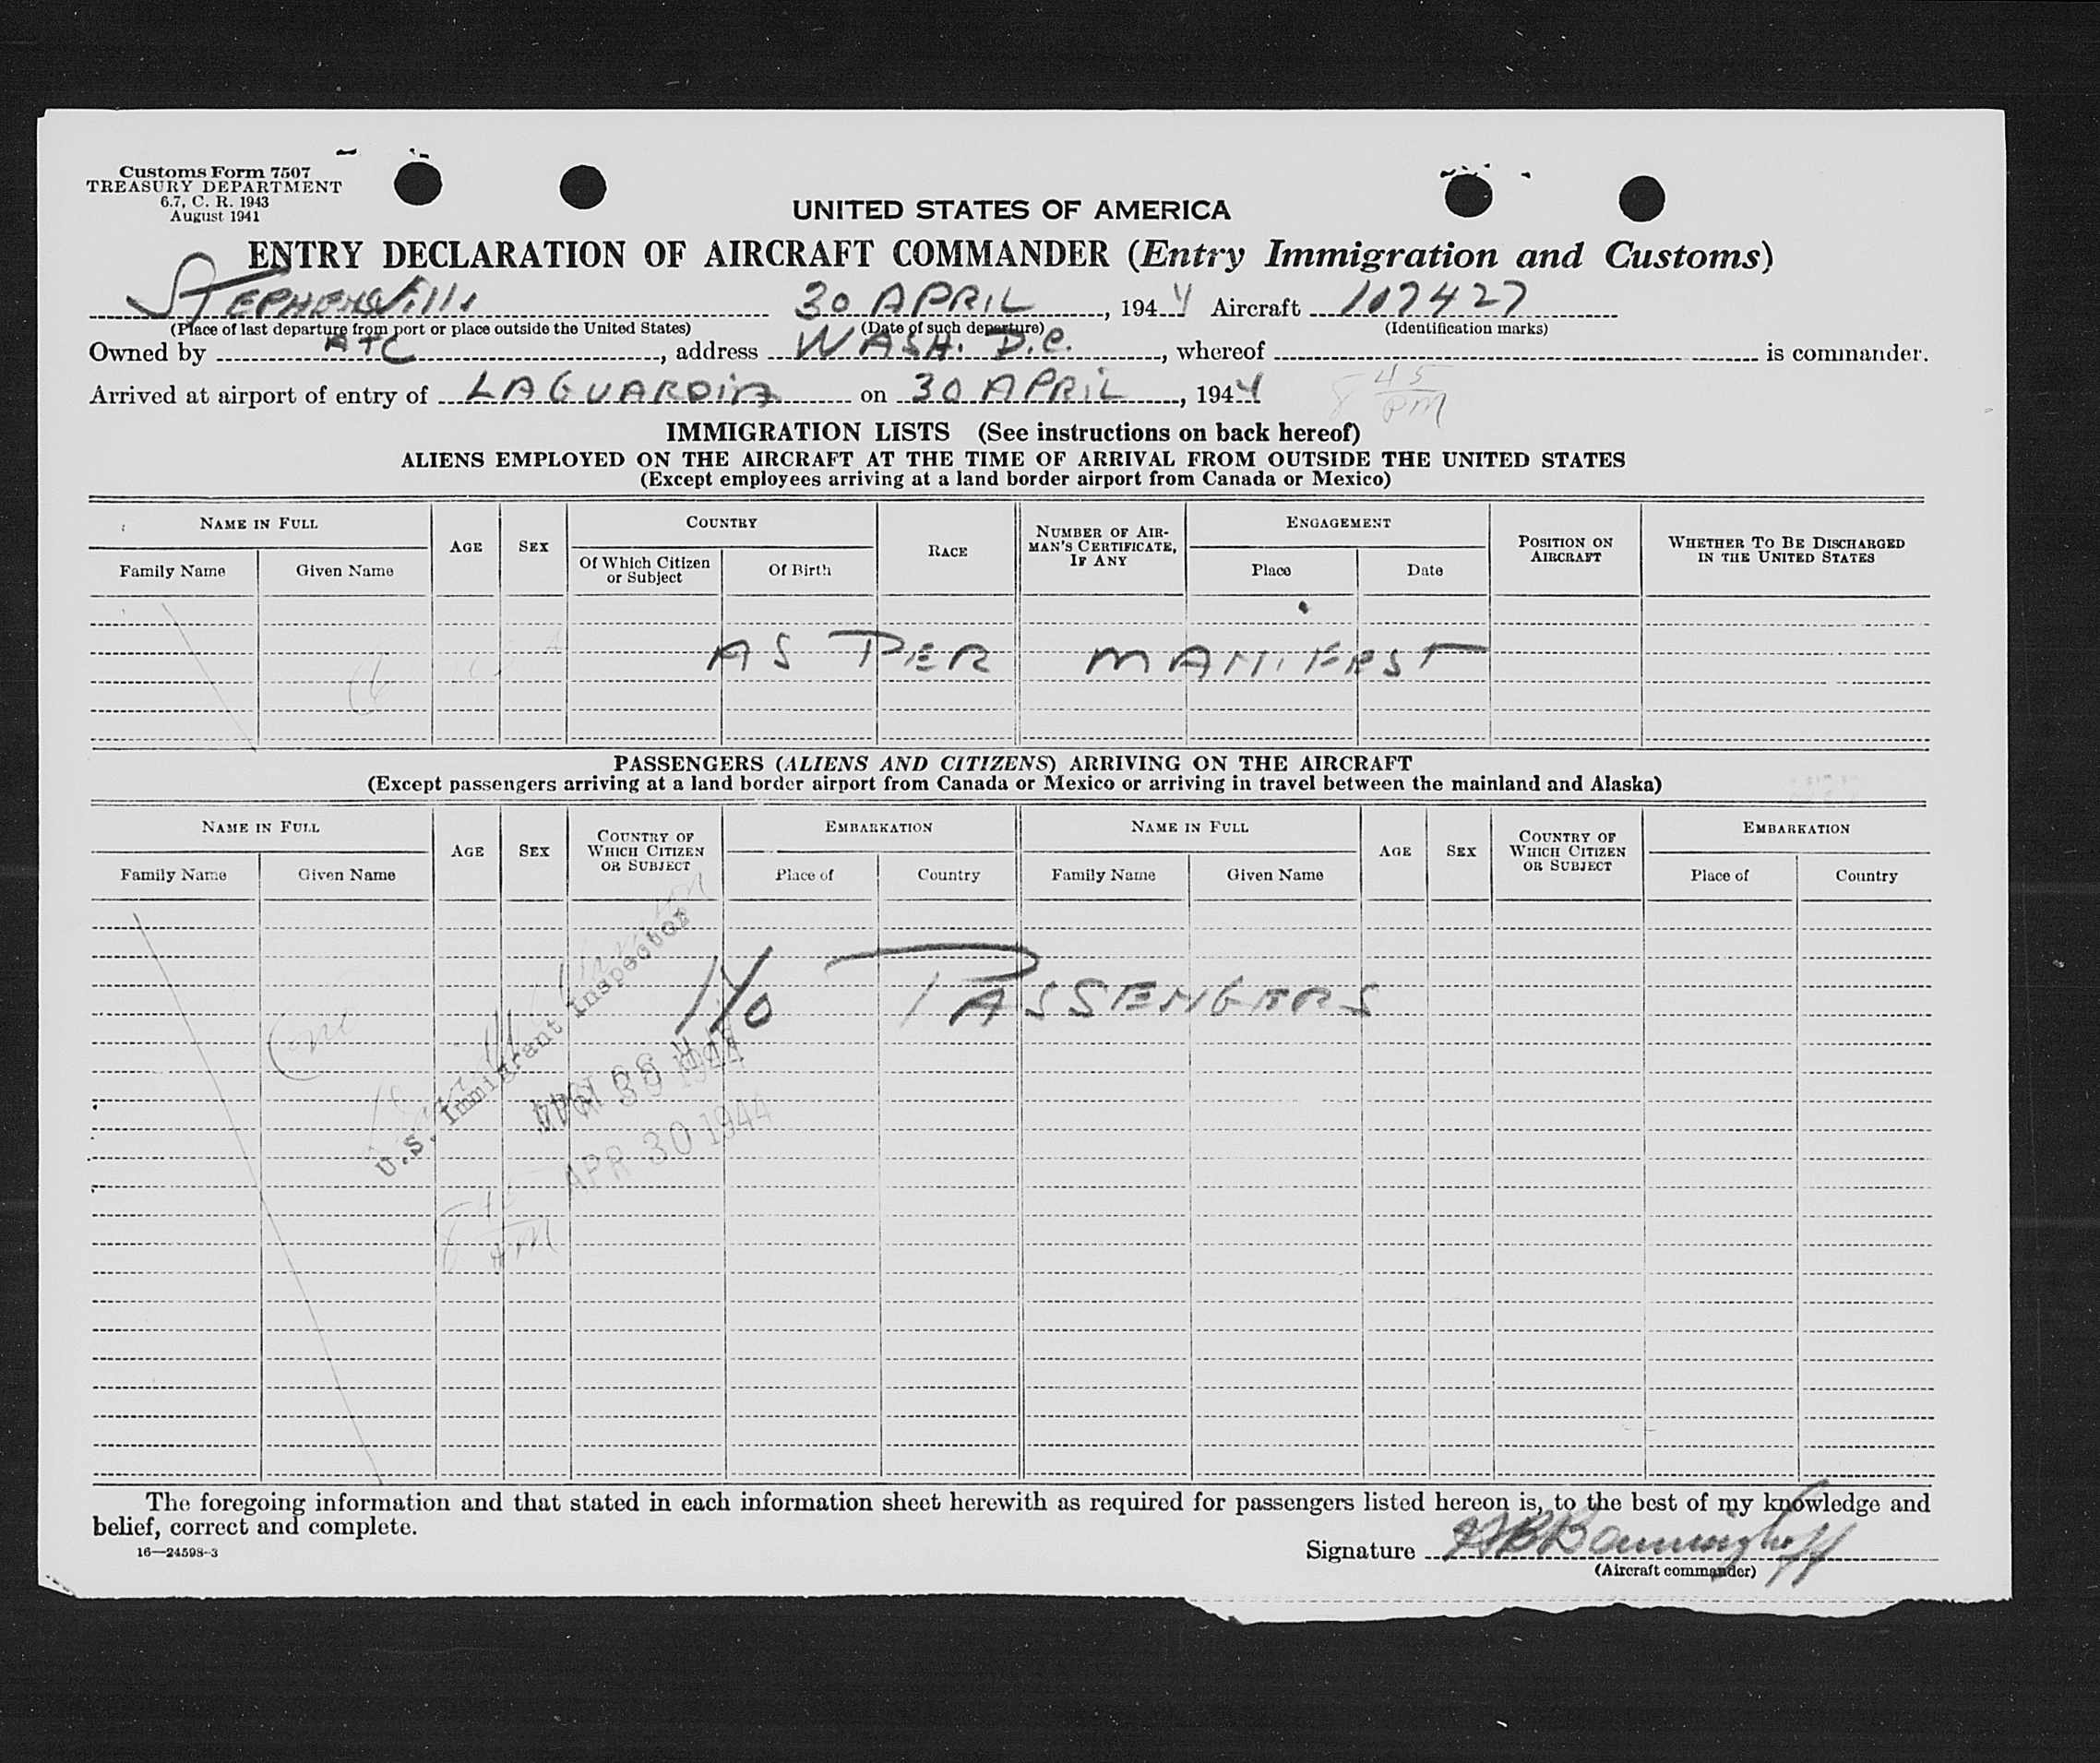 Customs Form 7507
TREASURY DEPARTMENT
6.7, C. R. 1943
August 1941
UNITED STATES OF AMERICA
ENTRY DECLARATION OF AIRCRAFT COMMANDER (Entry Immigration and Customs)
STEPHENSVille 30 APRIL, 1944 Aircraft 107427
(Place of last departure from port or place outside the United States) (Date of such departure) (Identification marks)
Owned by ATC, address WASH. D.C., whereof is commander.
Arrived at airport of entry of LAGUARDIA on 30 APRIL, 1944 8 45 PM
IMMIGRATION LISTS (See instructions on back hereof)
ALIENS EMPLOYED ON THE AIRCRAFT AT THE TIME OF ARRIVAL FROM OUTSIDE THE UNITED STATES
(Except employees arriving at a land border airport from Canada or Mexico)
NAME IN FULL AGE SEX COUNTRY RACE NUMBER OF AIRMAN'S CERTIFICATE, IF ANY ENGAGEMENT POSITION ON AIRCRAFT WHETHER TO BE DISCHARGED IN THE UNITED STATES
Family Name Given Name Of Which Citizen or Subject Of Birth Place Date
AS PER MANIFEST
PASSENGERS (ALIENS AND CITIZENS) ARRIVING ON THE AIRCRAFT
(Except passengers arriving at a land border airport from Canada or Mexico or arriving in travel between the mainland and Alaska)
NAME IN FULL AGE SEX COUNTRY OF WHICH CITIZEN OR SUBJECT EMBARKATION NAME IN FULL AGE SEX COUNTRY OF WHICH CITIZEN OR SUBJECT EMBARKATION
Family Name Given Name Place of Country Family Name Given Name Place of Country
No PASSENGERS
U.S. Immigrant Inspector
APR 30 1944
The foregoing information and that stated in each information sheet herewith as required for passengers listed hereon is, to the best of my knowledge and
belief, correct and complete.
16—24598-3
Signature
(Aircraft commander)